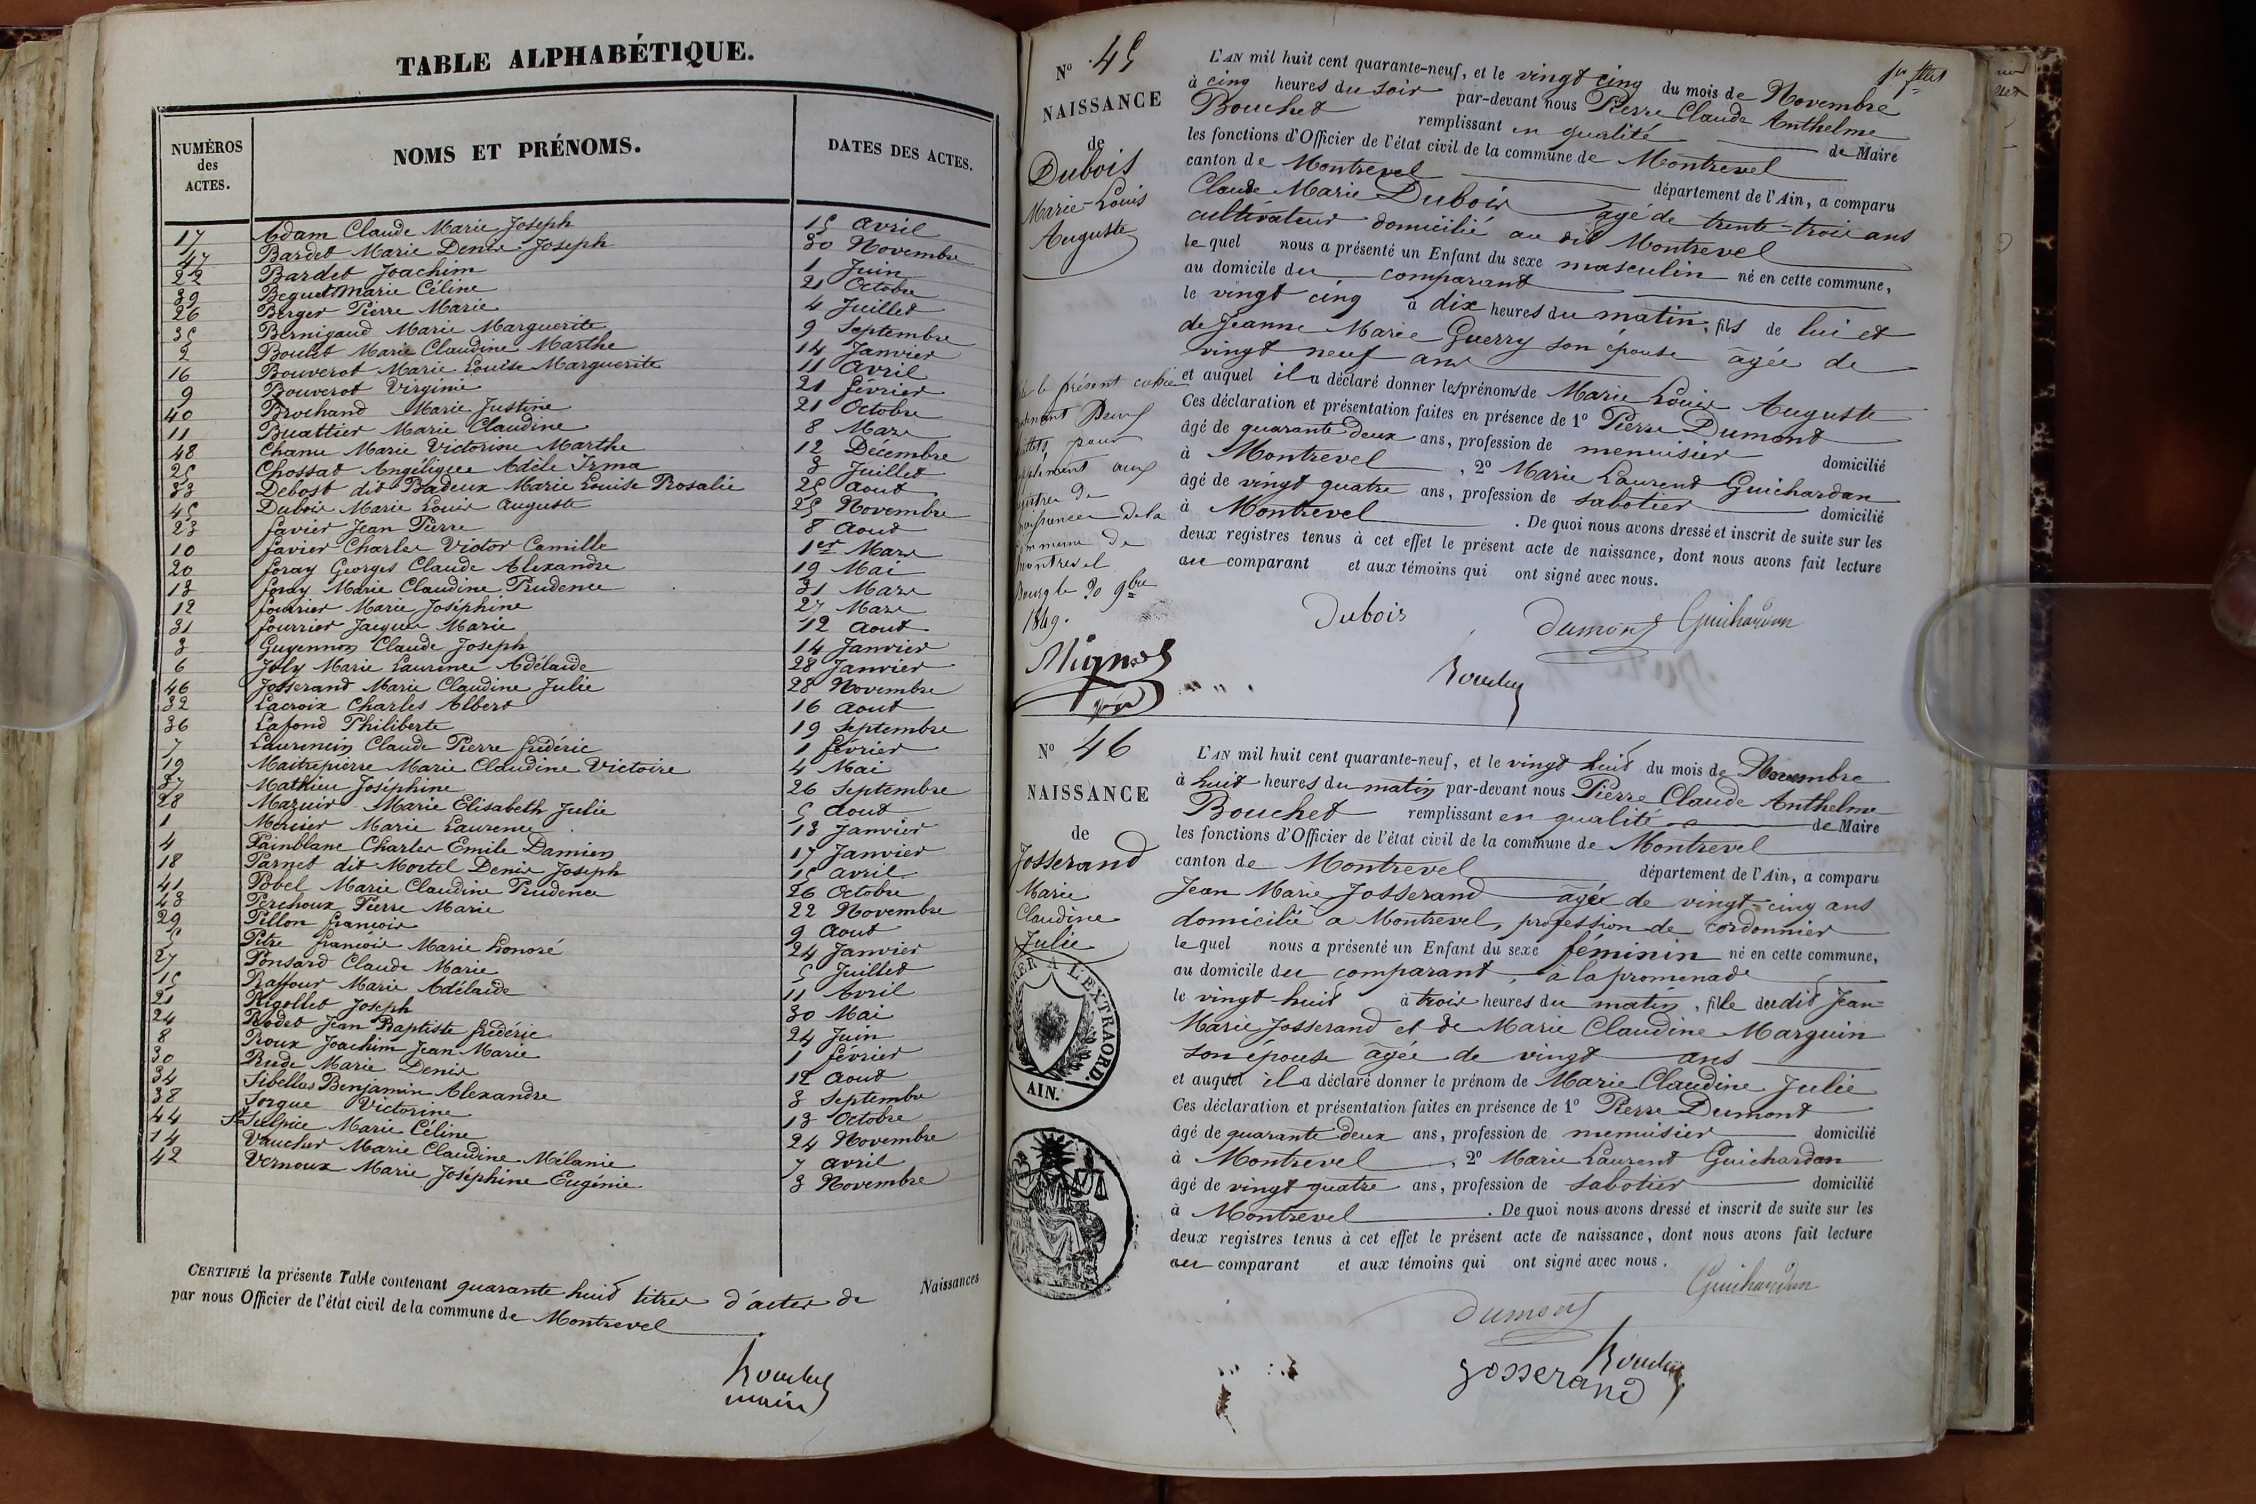 TABLE ALPHABÉTIQUE.
NUMÉROS des ACTES. NOMS ET PRÉNOMS. DATES DES ACTES.
17 Adam Claude Marie Joseph 15 avril
47 Bardet Marie Denis Joseph 30 Novembre
22 Bardet Joachim 1 Juin
39 Beguet Marie Céline 21 Octobre
26 Berger Pierre Marie 4 Juillet
35 Bernigaud Marie Marguerite 9 Septembre
2 Marie Claudine Marthe 14 Janvier
16 Bouverot Marie Louise Marguerite 11 avril
9 Bouverot Virginie 21 février
40 Brochand Marie Justine 21 Octobre
11 Buattier Marie Claudine 8 Mars
48 Chanu Marie Victorine Marthe 12 Décembre
25 Chossat Angélique Adèle Irma 3 Juillet
33 Debost dit Badeux Marie Louise Rosalie 25 aout
45 Dubois Marie Louis Auguste 25 Novembre
23 favier Jean Pierre 8 aout
10 favier Charles Victor Camille 1er Mars
20 foray Georges Claude Alexandre 19 Mai
13 foray Marie Claudine Prudence 31 Mars
12 fourrier Marie Joséphine 27 Mars
31 fourrier Jacques Marie 12 aout
3 Guyennon Claude Joseph 14 Janvier
6 Joly Marie Laurence Adélaïde 28 Janvier
46 Josserand Marie Claudine Julie 28 Novembre
32 Lacroix Charles Albert 16 aout
36 Lafond Philiberte 19 Septembre
7 Laurencin Claude Pierre frédéric 1 février
19 Maitrepierre Marie Claudine Victoire 4 Mai
37 Mathieu Joséphine 26 Septembre
28 Mazuir Marie Elisabeth Julie 5 aout
1 Mercier Marie Laurence 13 Janvier
4 Painblanc Charles Emile Damien 17 Janvier
18 Parnet dit Mortel Denis Joseph 15 avril
41 Pobel Marie Claudine Prudence 26 Octobre
43 Perchoux Pierre Marie 22 Novembre
29 Pillon françois 9 aout
5 Pitre françois Marie honoré 24 Janvier
27 Ponsard Claude Marie 5 Juillet
15 Raffour Marie Adélaïde 11 Avril
21 Rigollet Joseph 30 Mai
24 Rodet Jean Baptiste frédéric 24 Juin
8 Roux Joachim Jean Marie 1 février
30 Rude Marie Denis 12 aout
34 Sibellas Benjamin Alexandre 3 Septembre
38 Sorgue Victorine 13 Octobre
44 St Sulpice Marie Céline 24 Novembre
14 Vaucher Marie Claudine Mélanie 7 avril
42 Vernoux Marie Joséphine Eugénie 3 Novembre
CERTIFIÉ la présente Table contenant quarante huit titres d'actes de Naissances
par nous Officier de l'état civil de la commune de Montrevel
Bouchet
maire
No 45
NAISSANCE
de
Dubois
Marie-Louis
Auguste
L'AN mil huit cent quarante-neuf, et le vingt cinq du mois de Novembre
à cinq heures du soir par-devant nous Pierre Claude Anthelme
Bouchet remplissant en qualité de Maire
les fonctions d'Officier de l'état civil de la commune de Montrevel
canton de Montrevel département de l'Ain, a comparu
Claude Marie Dubois agé de trente-trois ans
cultivateur domicilié au dit Montrevel
le quel nous a présenté un Enfant du sexe masculin né en cette commune,
au domicile du comparant
le vingt cinq à dix heures du matin, fils de lui et
de Jeanne Marie Guerry son épouse âgée de
vingt neuf ans
et auquel il a déclaré donner les prénoms de Marie Louis Auguste
Ces déclaration et présentation faites en présence de 1º Pierre Dumont
âgé de quarante deux ans, profession de menuisier domicilié
à Montrevel, 2º Marie Laurent Guichardan
âgé de vingt quatre ans, profession de sabotier domicilié
à Montrevel. De quoi nous avons dressé et inscrit de suite sur les
deux registres tenus à cet effet le présent acte de naissance, dont nous avons fait lecture
au comparant et aux témoins qui ont signé avec nous.
le présent cahier
pour
aux
de
naissances de la
commune de
Montrevel
Bourg le 30 9bre
1849.
Dubois Dumont Guichardan
Bouchet
No 46
NAISSANCE
de
Josserand
Marie
Claudine
Julie
L'AN mil huit cent quarante-neuf, et le vingt huit du mois de Novembre
à huit heures du matin par-devant nous Pierre Claude Anthelme
Bouchet remplissant en qualité de Maire
les fonctions d'Officier de l'état civil de la commune de Montrevel
canton de Montrevel département de l'Ain, a comparu
Jean Marie Josserand agé de vingt-cinq ans
domicilié a Montrevel, profession de cordonnier
le quel nous a présenté un Enfant du sexe féminin né en cette commune,
au domicile du comparant, à la promenade
le vingt-huit à trois heures du matin, fille dudit Jean-
Marie Josserand et de Marie Claudine Marguin
son épouse âgée de vingt ans
et auquel il a déclaré donner le prénom de Marie Claudine Julie
Ces déclaration et présentation faites en présence de 1º Pierre Dumont
âgé de quarante deux ans, profession de menuisier domicilié
à Montrevel, 2º Marie Laurent Guichardan
âgé de vingt quatre ans, profession de sabotier domicilié
à Montrevel. De quoi nous avons dressé et inscrit de suite sur les
deux registres tenus à cet effet le présent acte de naissance, dont nous avons fait lecture
au comparant et aux témoins qui ont signé avec nous.
A L'EXTRAORD.
AIN.
Dumont Guichardan
Bouchet
Josserand